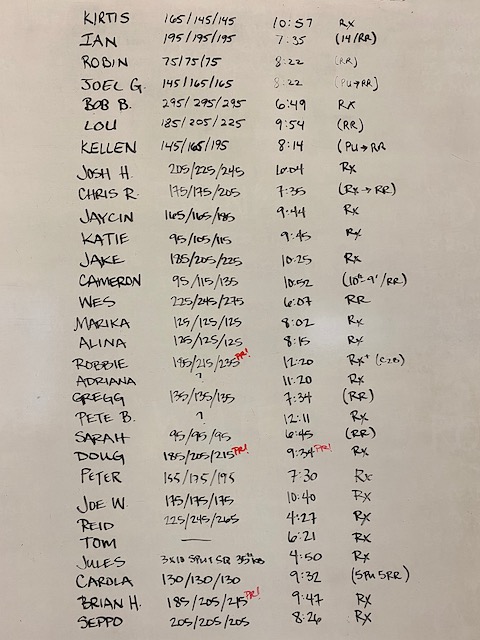 KIRTIS 165/145/145 10:57 Rx
IAN 195/195/195 7:35 (14/RR)
ROBIN 75/75/75 8:22 (RR)
JOEL G. 145/165/165 8:22 (PU→RR)
BOB B. 295/295/295 6:49 Rx
LOU 185/205/225 9:54 (RR)
KELLEN 145/165/195 8:14 (PU→RR
JOSH H. 205/225/245 10:04 Rx
CHRIS R. 175/175/205 7:35 (Rx→RR)
JAYCIN 165/165/185 9:44 Rx
KATIE 95/105/115 9:45 Rx
JAKE 185/205/225 10:25 Rx
CAMERON 95/115/135 10:52 /RR)
WES 225/245/275 6:07 RR
MARIKA 125/125/125 8:02 Rx
ALINA 125/125/125 8:15 Rx
ROBBIE 195/215/235 PR! 12:20 Rx+
ADRIANA ? 11:20 Rx
GREGG 135/135/135 7:34 (RR)
PETE B. ? 12:11 Rx
SARAH 95/95/95 6:45 (RR)
DOUG 185/205/215 PR! 9:34 PR! Rx
PETER 155/175/195 7:30 Rx
JOE W. 175/175/175 10:40 Rx
REID 225/245/265 4:27 Rx
TOM — 6:21 Rx
JULES 3x10 SPLIT SQ 35# KB 4:50 Rx
CAROLA 130/130/130 9:32 (5PU 5RR)
BRIAN H. 185/205/215 PR! 9:47 Rx
SEPPO 205/205/205 8:26 Rx